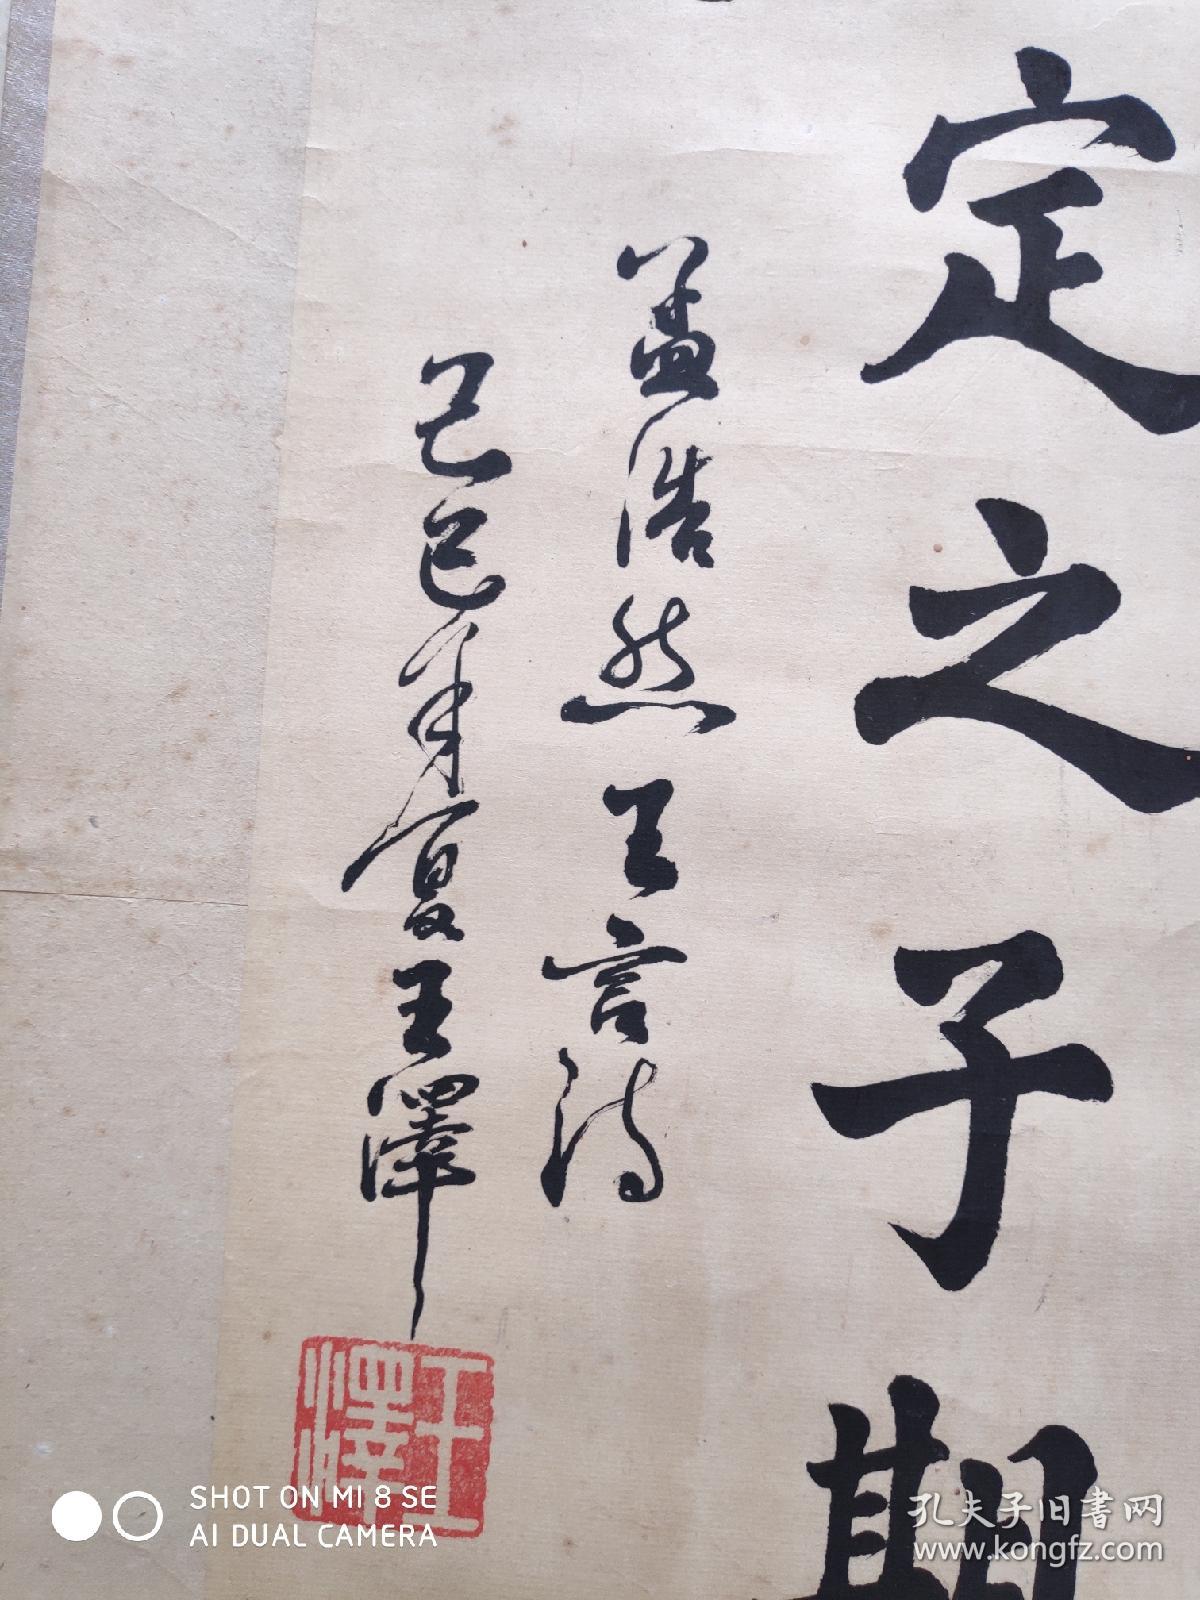 定之子期
孟浩然五言詩
己巳年夏王澤
王澤
SHOT ON MI 8 SE
AI DUAL CAMERA
孔夫子旧書网
www.kongfz.com